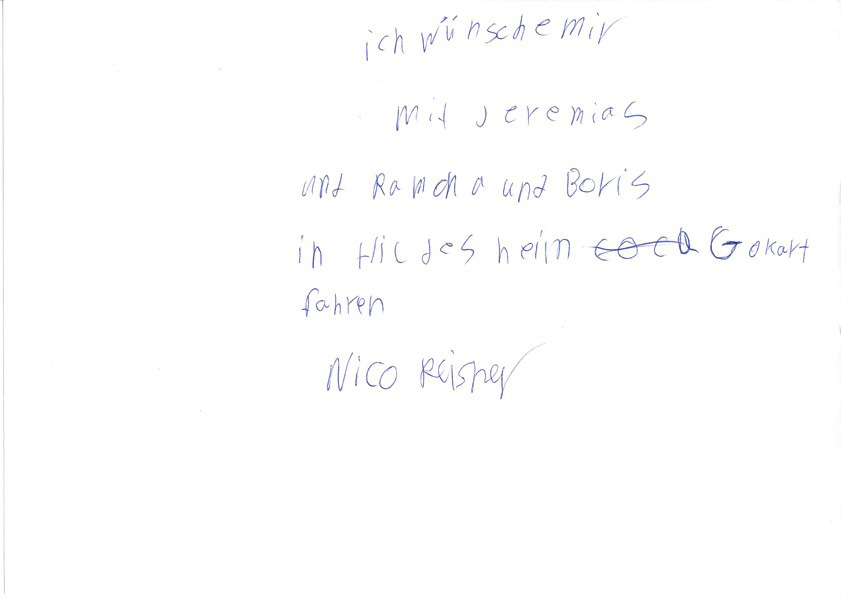 ich wünsche mir
mit Jeremias
und Ramona und Boris
in Hildesheim Gokart
fahren
Nico Reisner